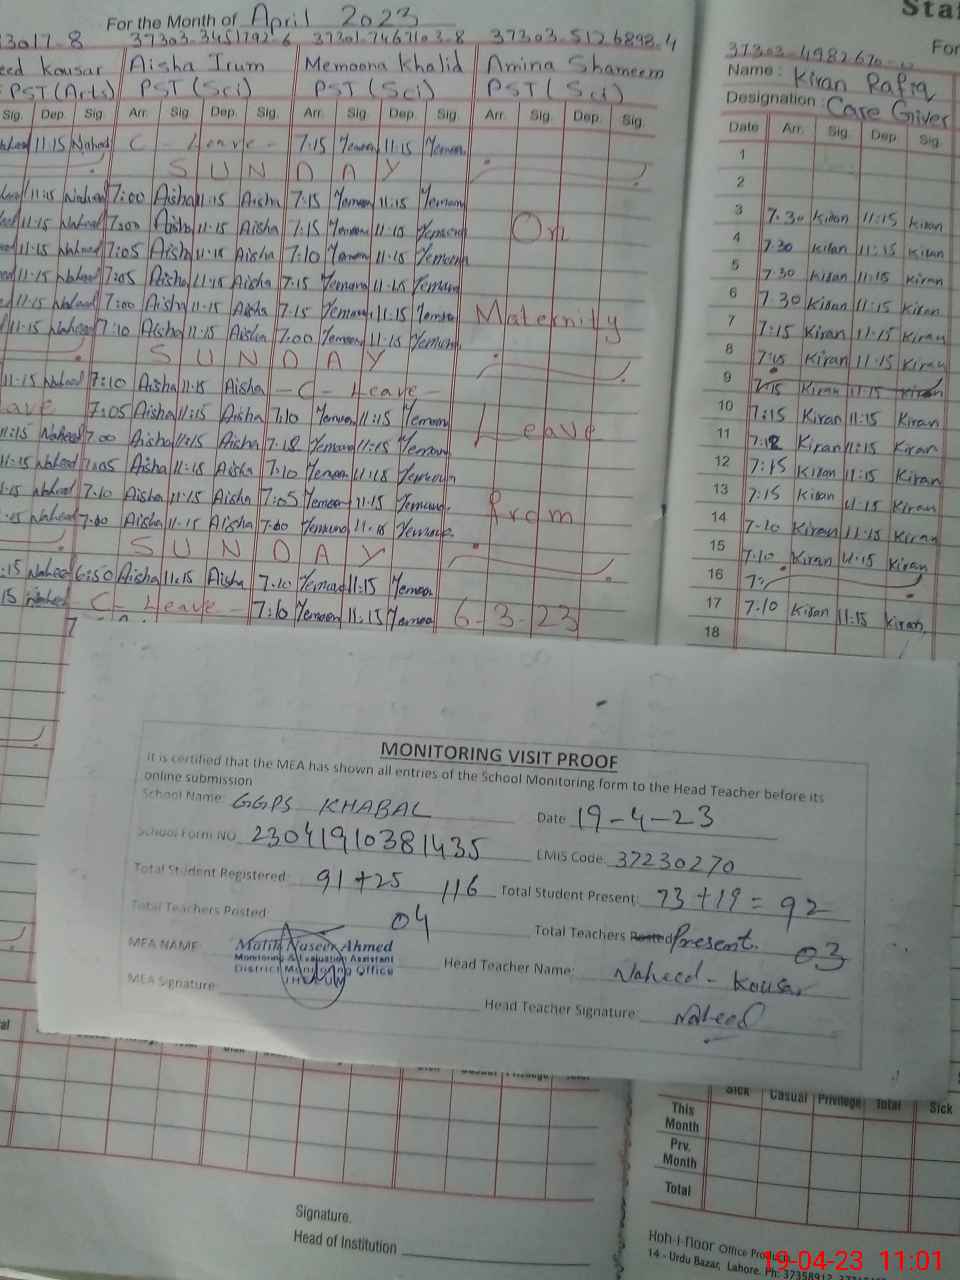 For the Month of April 2023
3017-8 37303-3451792-6 37301-7467103-8 37303-5126898-4
eed Kousar Aisha Irum Memoona Khalid Amina Shameem
PST(Arts) PST (Sci) PST (Sci) PST (Sci)
Sig. Dep. Sig. Arr. Sig. Dep. Sig. Arr. Sig. Dep. Sig. Arr. Sig. Dep. Sig.
11:15 Naheed C - Leave - 7:15 11:15
S U N D A Y
11:15 Naheed 7:00 Aisha 11:15 Aisha 7:15 11:15
11:15 Naheed 7:00 Aisha 11:15 Aisha 7:15 11:15 On
11:15 Naheed 7:05 Aisha 11:15 Aisha 7:10 11:15
11:15 Naheed 7:05 Aisha 11:15 Aisha 7:15 11:15
11:15 Naheed 7:00 Aisha 11:15 Aisha 7:15 11:15 Maternity
11:15 Naheed 7:10 Aisha 11:15 Aisha 7:00 11:15
S U N D A Y
11:15 Naheed 7:10 Aisha 11:15 Aisha - C - Leave -
eave 7:05 Aisha 11:15 Aisha 7:10 11:15 Leave
11:15 Naheed 7:00 Aisha 11:15 Aisha 7:12 11:15
11:15 Naheed 7:05 Aisha 11:15 Aisha 7:10 11:15
:15 Naheed 7:10 Aisha 11:15 Aisha 7:05 11:15 from
:15 Naheed 7:00 Aisha 11:15 Aisha 7:00 11:15
S U N D A Y
:15 Naheed 6:50 Aisha 11:15 Aisha 7:10 11:15
15 Naheed C - Leave - 7:10 11:15 6-3-23
Sta
For
Name: Kiran Rafiq
Designation: Care Giver
Date Arr. Sig. Dep. Sig.
1
2
3 7.30 Kiran 11:15 Kiran
4 7.30 Kiran 11:15 Kiran
5 7.30 Kiran 11:15 Kiran
6 7.30 Kiran 11:15 Kiran
7 7:15 Kiran 11:15 Kiran
8 7:15 Kiran 11:15 Kiran
9 7:15 Kiran 11:15 Kiran
10 7:15 Kiran 11:15 Kiran
11 7:12 Kiran 11:15 Kiran
12 7:15 Kiran 11:15 Kiran
13 7:15 Kiran 11:15 Kiran
14 7:10 Kiran 11:15 Kiran
15 7:10 Kiran 11:15 Kiran
16 7:
17 7:10 Kiran 11:15 Kiran
18
MONITORING VISIT PROOF
It is certified that the MEA has shown all entries of the School Monitoring form to the Head Teacher before its
online submission
School Name: GGPS KHABAL Date 19-4-23
School Form NO. 23041910381435 EMIS Code: 37230270
Total Student Registered: 91+25 116 Total Student Present: 73+19=92
Total Teachers Posted: 04 Total Teachers Posted Present. 03
MEA NAME: Malik Naseer Ahmed
Monitoring & Evaluation Assistant
District Monitoring Office
JHELUM
Head Teacher Name: Naheed - Kousar
MEA Signature: Head Teacher Signature: Naheed
Sick Casual Privilege Total Sick
This
Month
Prv.
Month
Total
Signature.
Head of Institution
Hoh-i-Noor Office Products
14 - Urdu Bazar, Lahore. Ph: 37358912
19-04-23 11:01